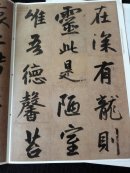 在深有龍則
靈此是陋室
惟吾德馨苔